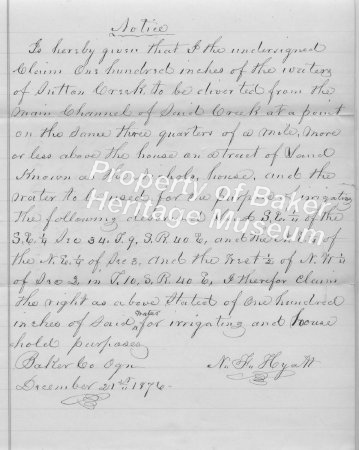 Notice
Is hereby given that I the undersigned
Claim One hundred inches of the waters
of Sutton Creek to be diverted from the
Main Channel of Said Creek at a point
on the same three quarters of a mile, more
or less above the house on a tract of Land
Known as the house, and the
Water to be used for the purpose of irrigating
The following described land S.E.¼ of the
S.E.¼ Sec 34. T.9. S.R. 40 E, and the of
the N.E.¼ of Sec 3, and the West ½ of N.W.¼
of Sec 2, in T.10, S.R. 40 E, I therefor Claim
the right as above Stated of One hundred
inches of Said water for irrigating and house
hold purposes
Baker Co Ogn N. F. Hyatt
December 21st 1876
Property of Baker
Heritage Museum